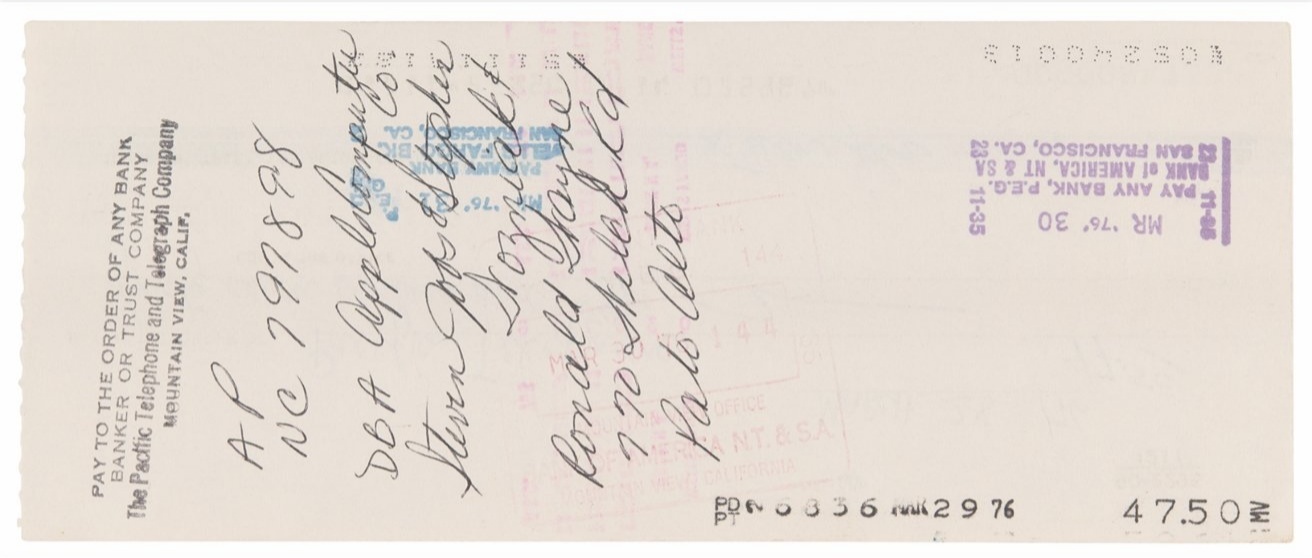 PAY TO THE ORDER OF ANY BANK
BANKER OR TRUST COMPANY
The Pacific Telephone and Telegraph Company
MOUNTAIN VIEW, CALIF.
AP
NC 797898
DBA Apple Computer Co.
Steven Jobs & Stephen
Wozniak &
Ronald Wayne
770 Welch Rd
Palo Alto
MR '76 30
PAY ANY BANK, P.E.G.
BANK of AMERICA, NT & SA
SAN FRANCISCO, CA.
11-35
23
PAY ANY BANK
WELLS FARGO BK
SAN FRANCISCO, CA.
MAR 30 76 144
MOUNTAIN VIEW OFFICE
OF AMERICA N.T. & S.A.
MOUNTAIN VIEW CALIFORNIA
PD
PT
6836 MAR 29 76
47.50 MV